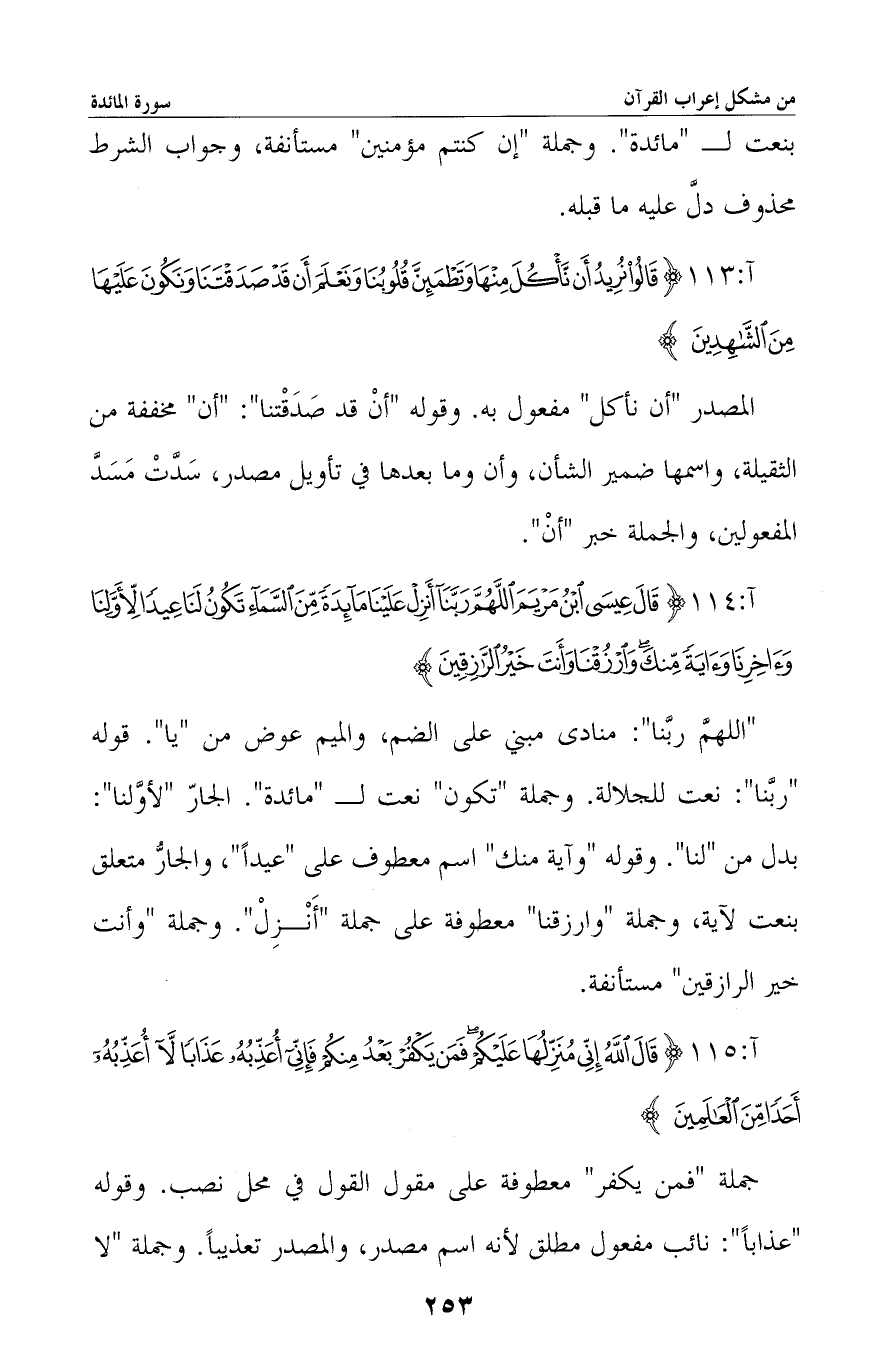 من مشكل إعراب القرآن
سورة المائدة
بنعت لـــ "مائدة". وجملة "إن كنتم مؤمنين" مستأنفة، وجواب الشرط
محذوف دلَّ عليه ما قبله.
آ:١١٣ ﴿ قَالُوا۟ نُرِيدُ أَن نَّأْكُلَ مِنْهَا وَتَطْمَئِنَّ قُلُوبُنَا وَنَعْلَمَ أَن قَدْ صَدَقْتَنَا وَنَكُونَ عَلَيْهَا
مِنَ ٱلشَّٰهِدِينَ ﴾
المصدر "أن نأكل" مفعول به. وقوله "أنْ قد صَدَقْتنا": "أن" مخففة من
الثقيلة، واسمها ضمير الشأن، وأن وما بعدها في تأويل مصدر، سَدَّتْ مَسَدَّ
المفعولين، والجملة خبر "أنْ".
آ:١١٤ ﴿ قَالَ عِيسَى ٱبْنُ مَرْيَمَ ٱللَّهُمَّ رَبَّنَآ أَنزِلْ عَلَيْنَا مَآئِدَةً مِّنَ ٱلسَّمَآءِ تَكُونُ لَنَا عِيدًا لِّأَوَّلِنَا
وَءَاخِرِنَا وَءَايَةً مِّنكَۖ وَٱرْزُقْنَا وَأَنتَ خَيْرُ ٱلرَّٰزِقِينَ ﴾
"اللهمَّ ربَّنا": منادى مبني على الضم، والميم عوض من "يا". قوله
"ربَّنا": نعت للجلالة. وجملة "تكون" نعت لـــ "مائدة". الجارّ "لأوَّلنا":
بدل من "لنا". وقوله "وآية منك" اسم معطوف على "عيداً"، والجارُّ متعلق
بنعت لآية، وجملة "وارزقنا" معطوفة على جملة "أَنْـــزِلْ". وجملة "وأنت
خير الرازقين" مستأنفة.
آ:١١٥ ﴿ قَالَ ٱللَّهُ إِنِّى مُنَزِّلُهَا عَلَيْكُمْۖ فَمَن يَكْفُرْ بَعْدُ مِنكُمْ فَإِنِّىٓ أُعَذِّبُهُۥ عَذَابًا لَّآ أُعَذِّبُهُۥٓ
أَحَدًا مِّنَ ٱلْعَٰلَمِينَ ﴾
جملة "فمن يكفر" معطوفة على مقول القول في محل نصب. وقوله
"عذاباً": نائب مفعول مطلق لأنه اسم مصدر، والمصدر تعذيباً. وجملة "لا
٢٥٣